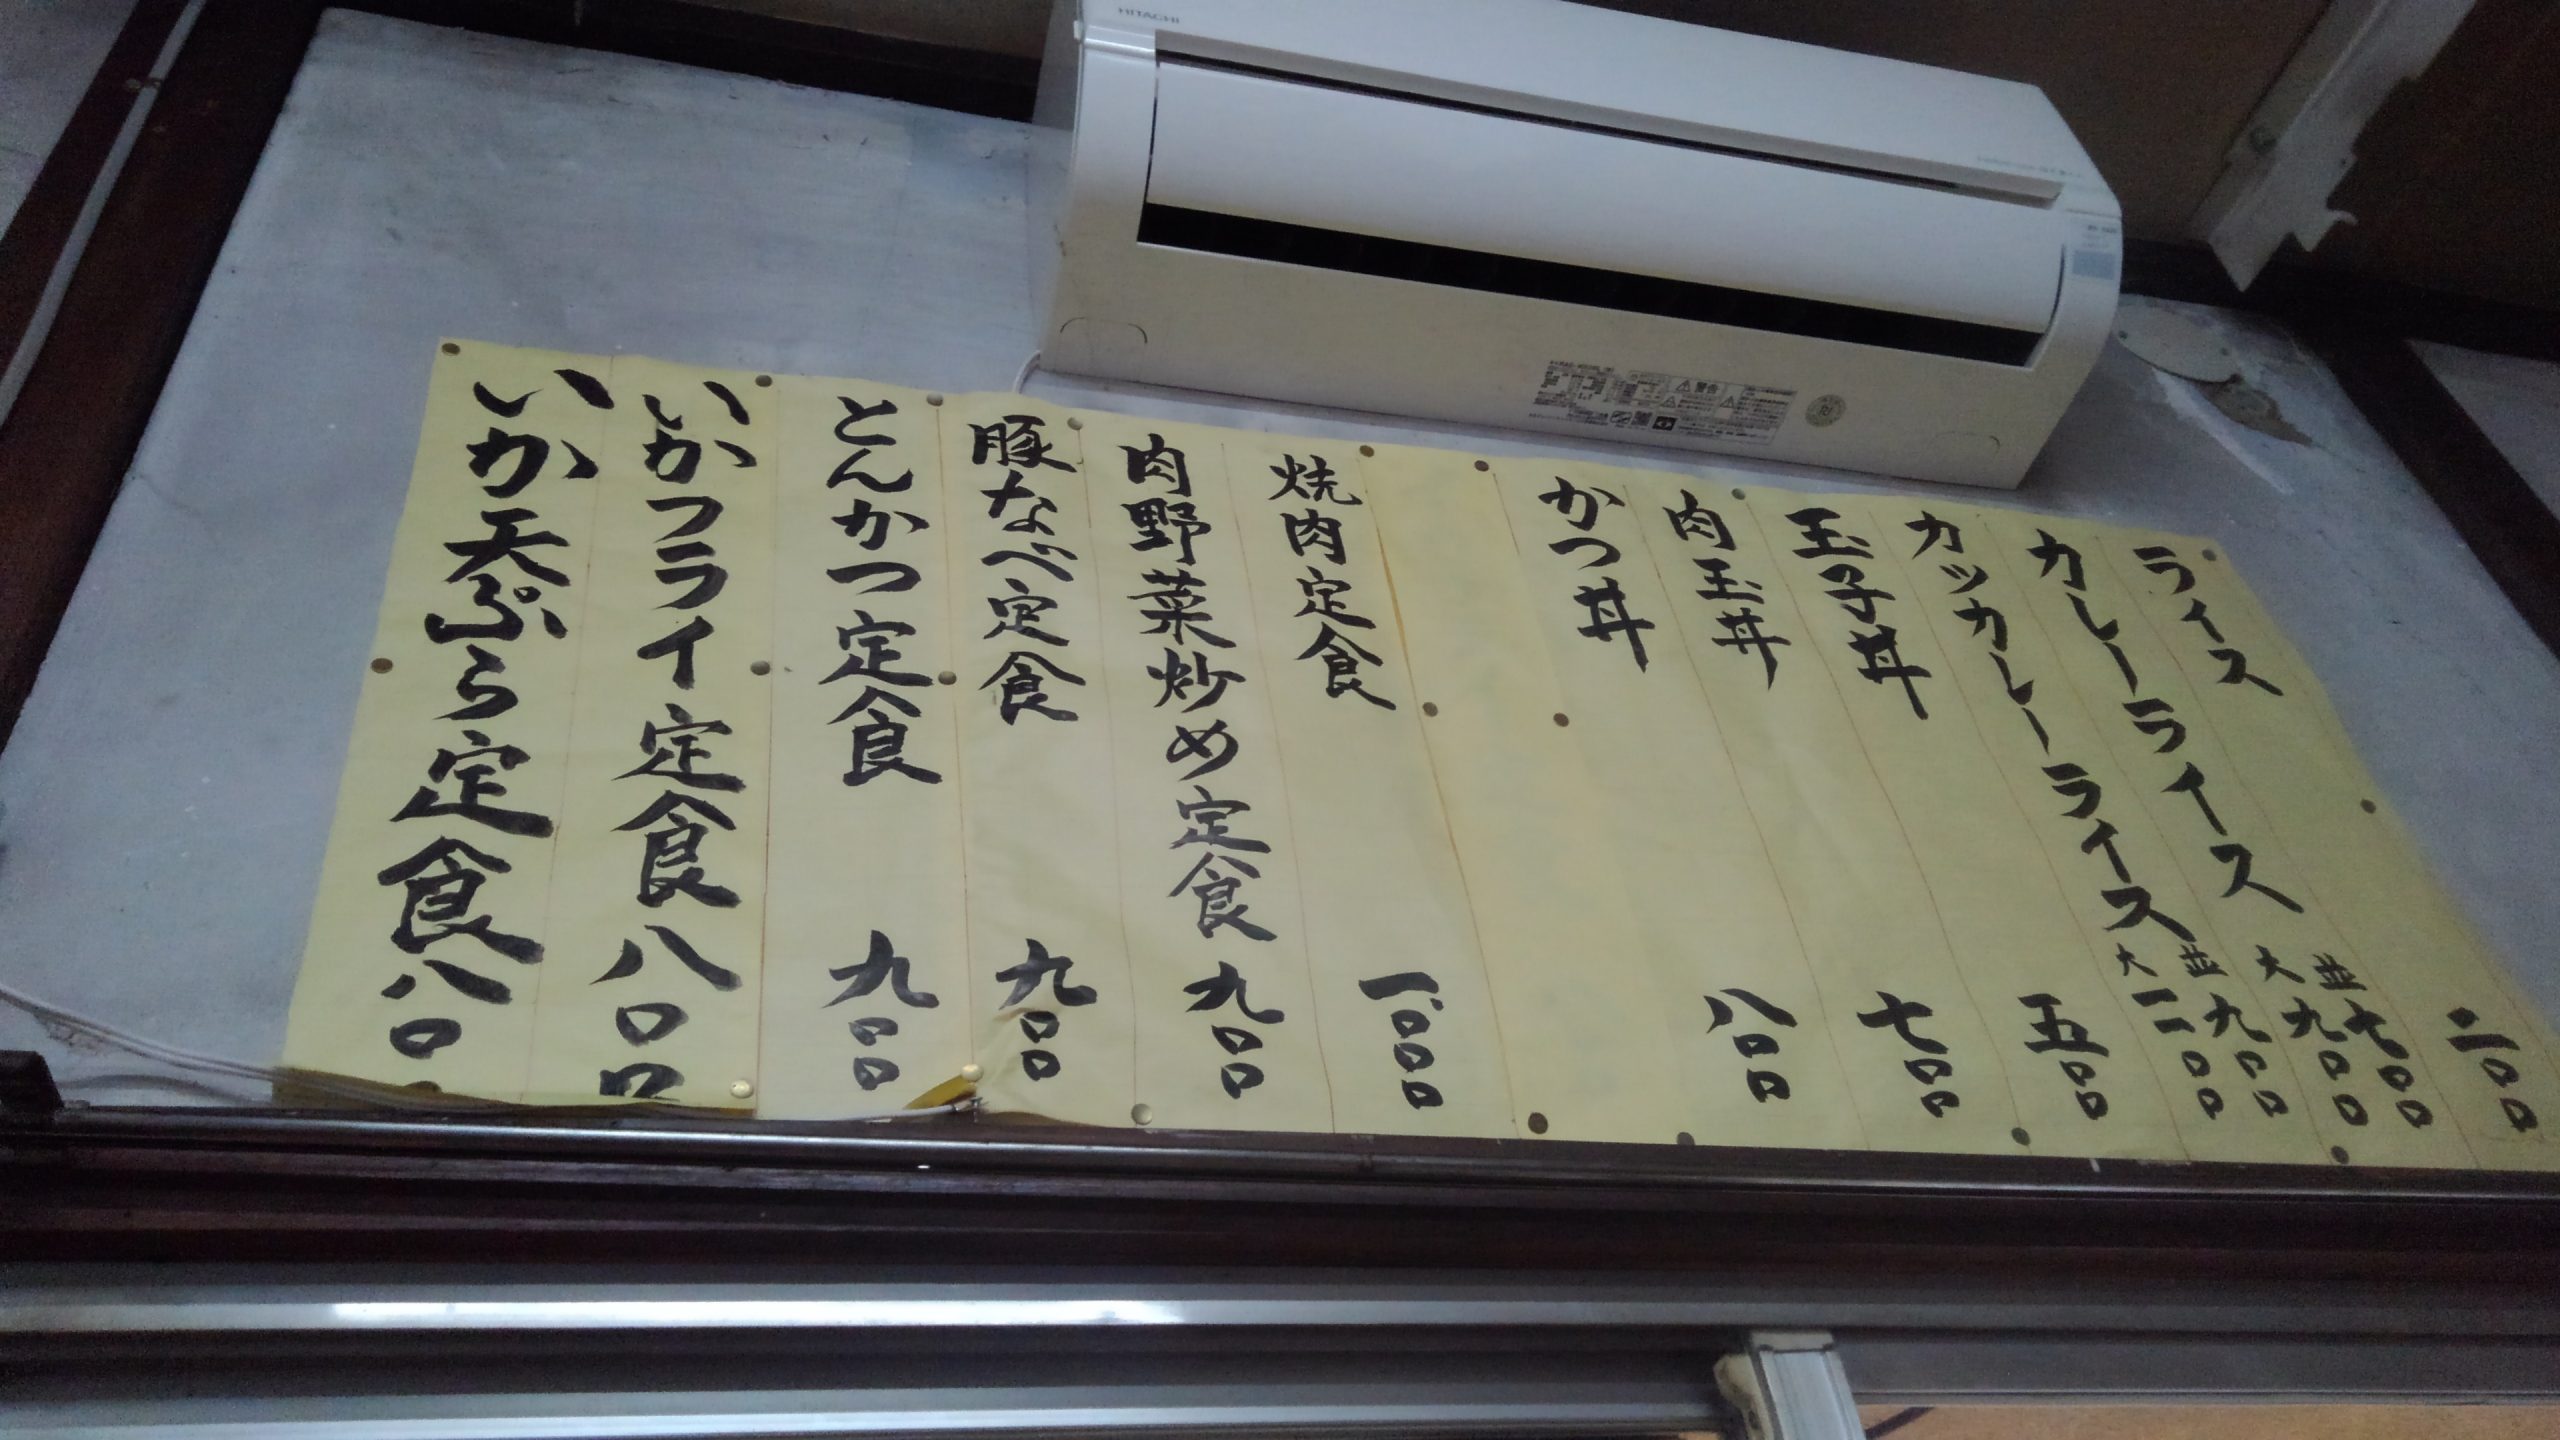 HITACHI
警告
ライス 二〇〇
カレーライス 並 七〇〇
大 九〇〇
カツカレーライス 並 九〇〇
大 一一〇〇
玉子丼 五〇〇
肉玉丼 七〇〇
かつ丼 八〇〇
焼肉定食 一、〇〇〇
肉野菜炒め定食 九〇〇
豚なべ定食 九〇〇
とんかつ定食 九〇〇
いかフライ定食 八〇〇
いか天ぷら定食 八〇